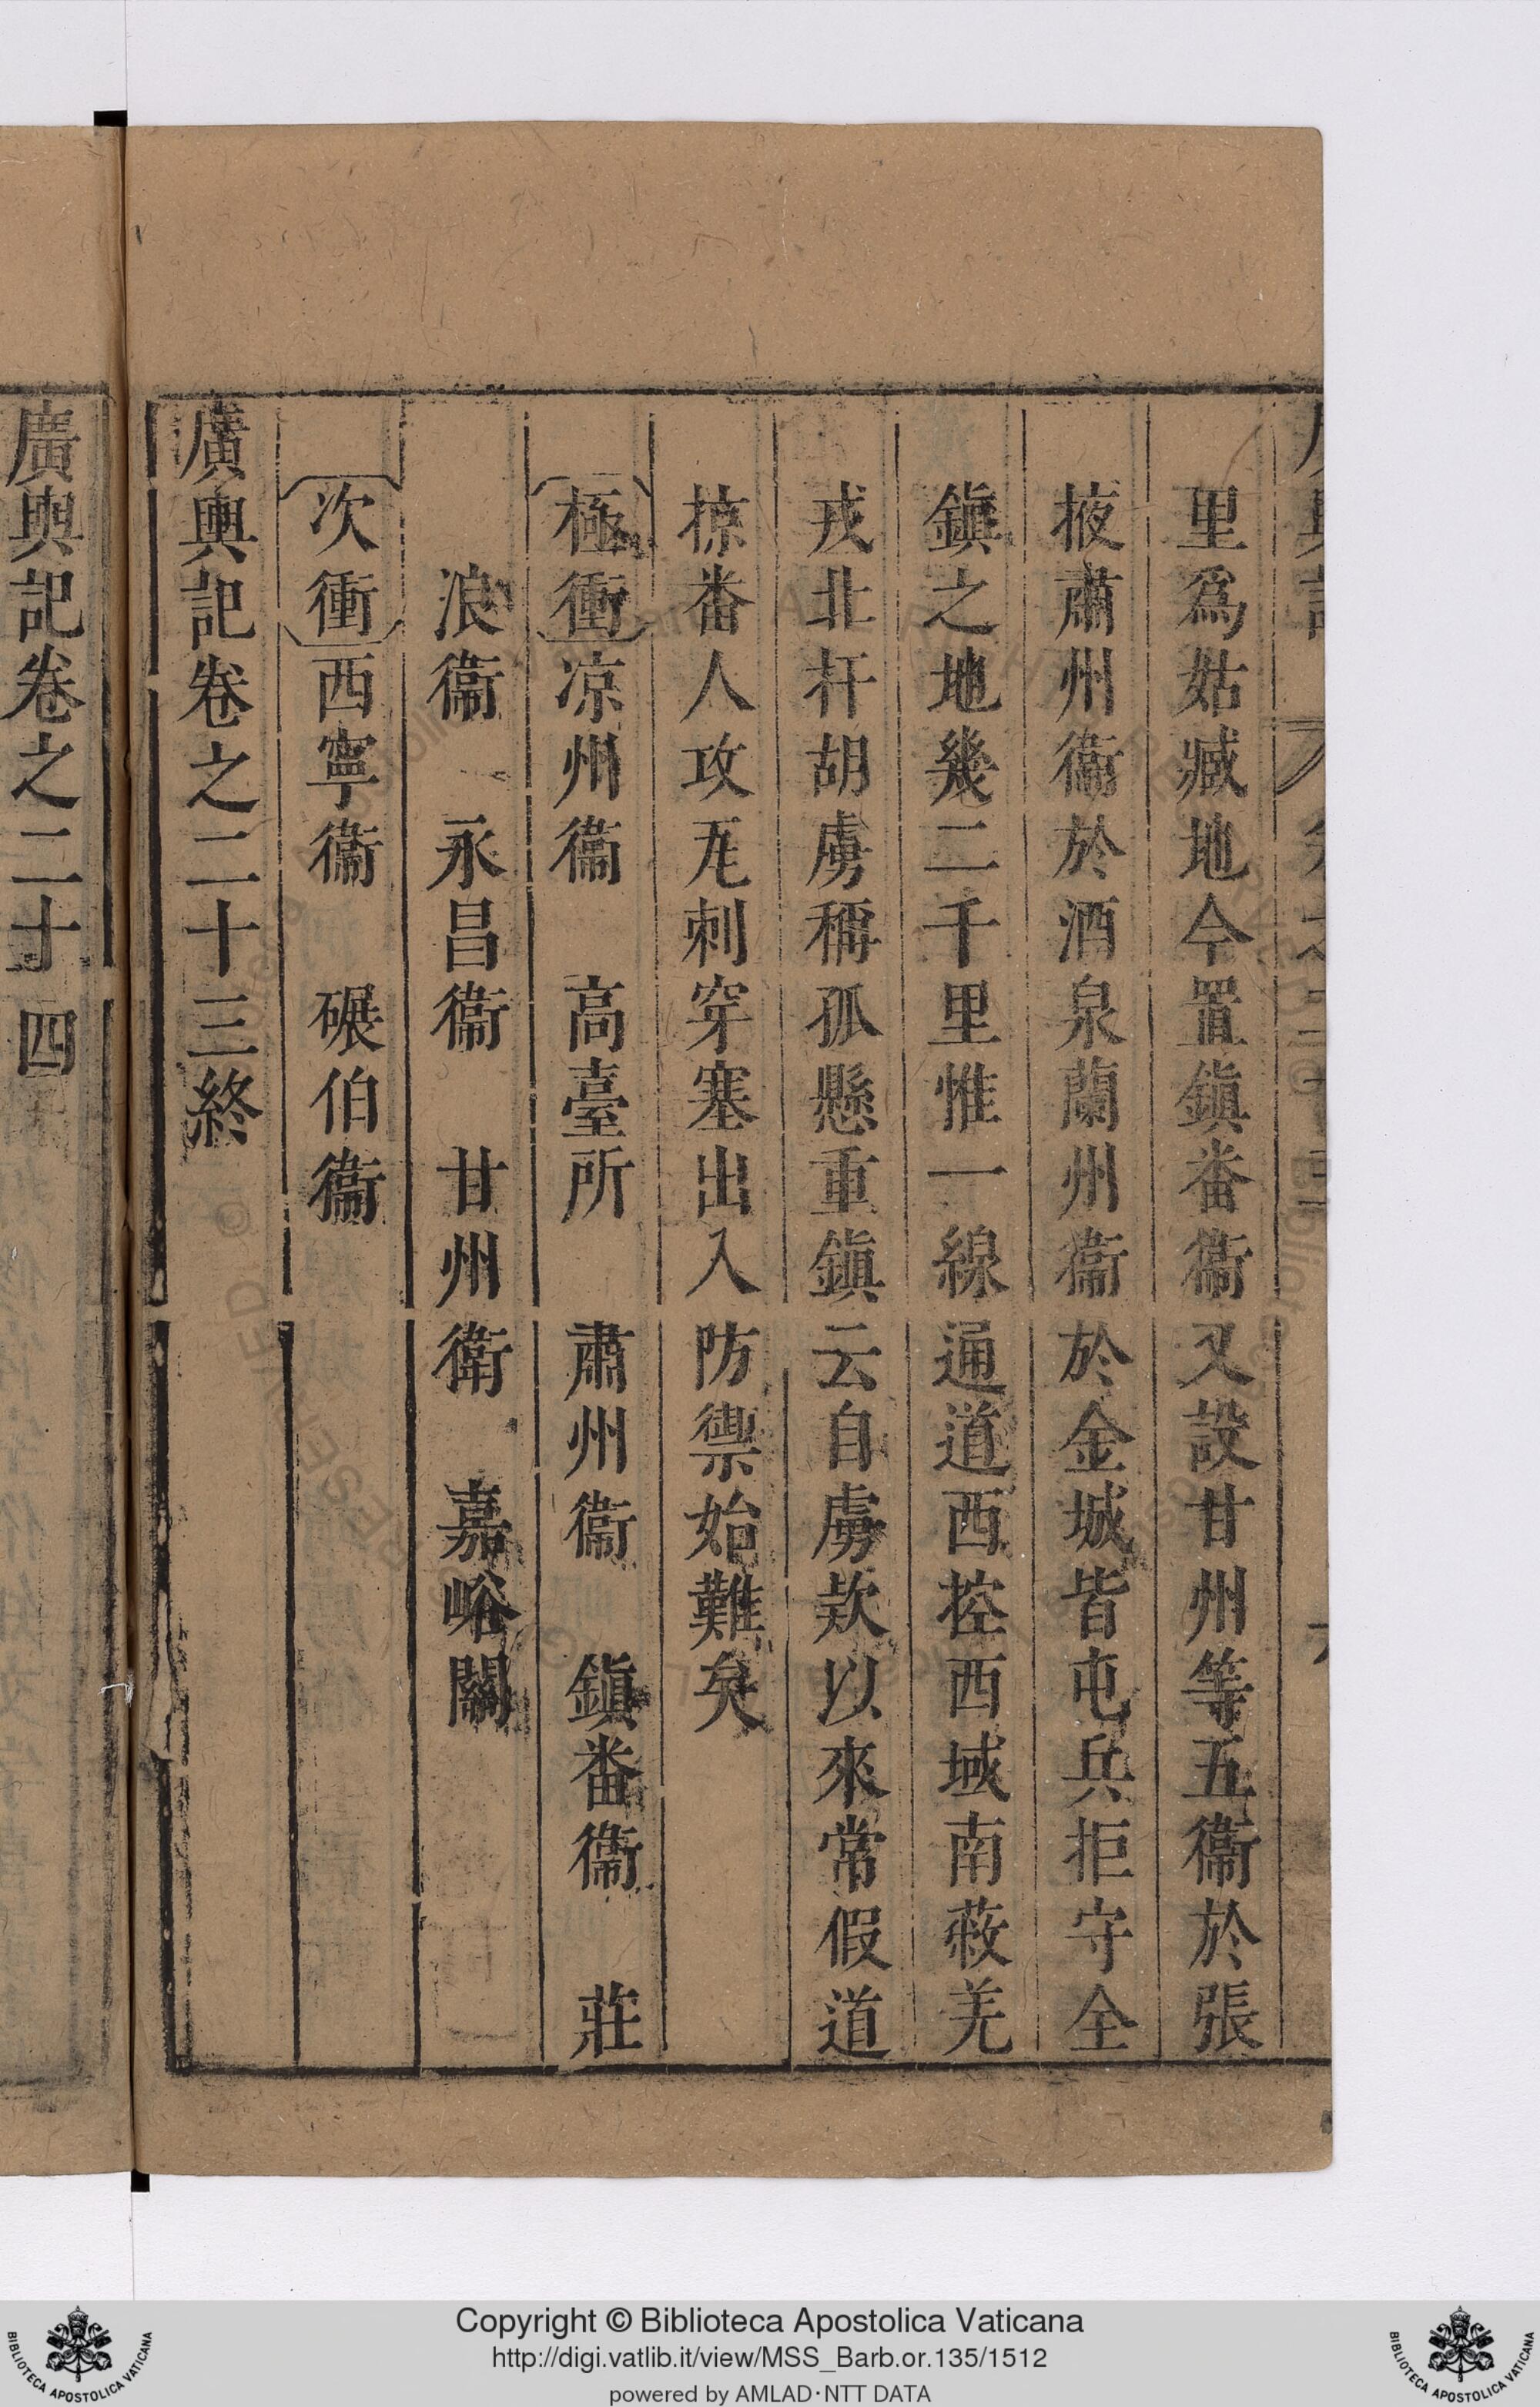 里爲姑臧地今置鎭番衞又設甘州等五衞於張
掖肅州衞於酒泉蘭州衞於金城皆屯兵拒守全
鎭之地幾二千里惟一線通道西控西域南蔽羌
戎北扞胡虜稱孤懸重鎭云自虜欵以來常假道
掠番人攻瓦剌穿塞出入防禦始難矣
極衝凉州衞 高臺所 肅州衞 鎭番衞 莊
浪衞 永昌衞 甘州衛 嘉峪關
次衝西寧衞 碾伯衞
廣輿記卷之二十三終
廣輿記卷之二十四
Copyright © Biblioteca Apostolica Vaticana
http://digi.vatlib.it/view/MSS_Barb.or.135/1512
powered by AMLAD·NTT DATA
BIBLIOTECA APOSTOLICA VATICANA
BIBLIOTECA APOSTOLICA VATICANA